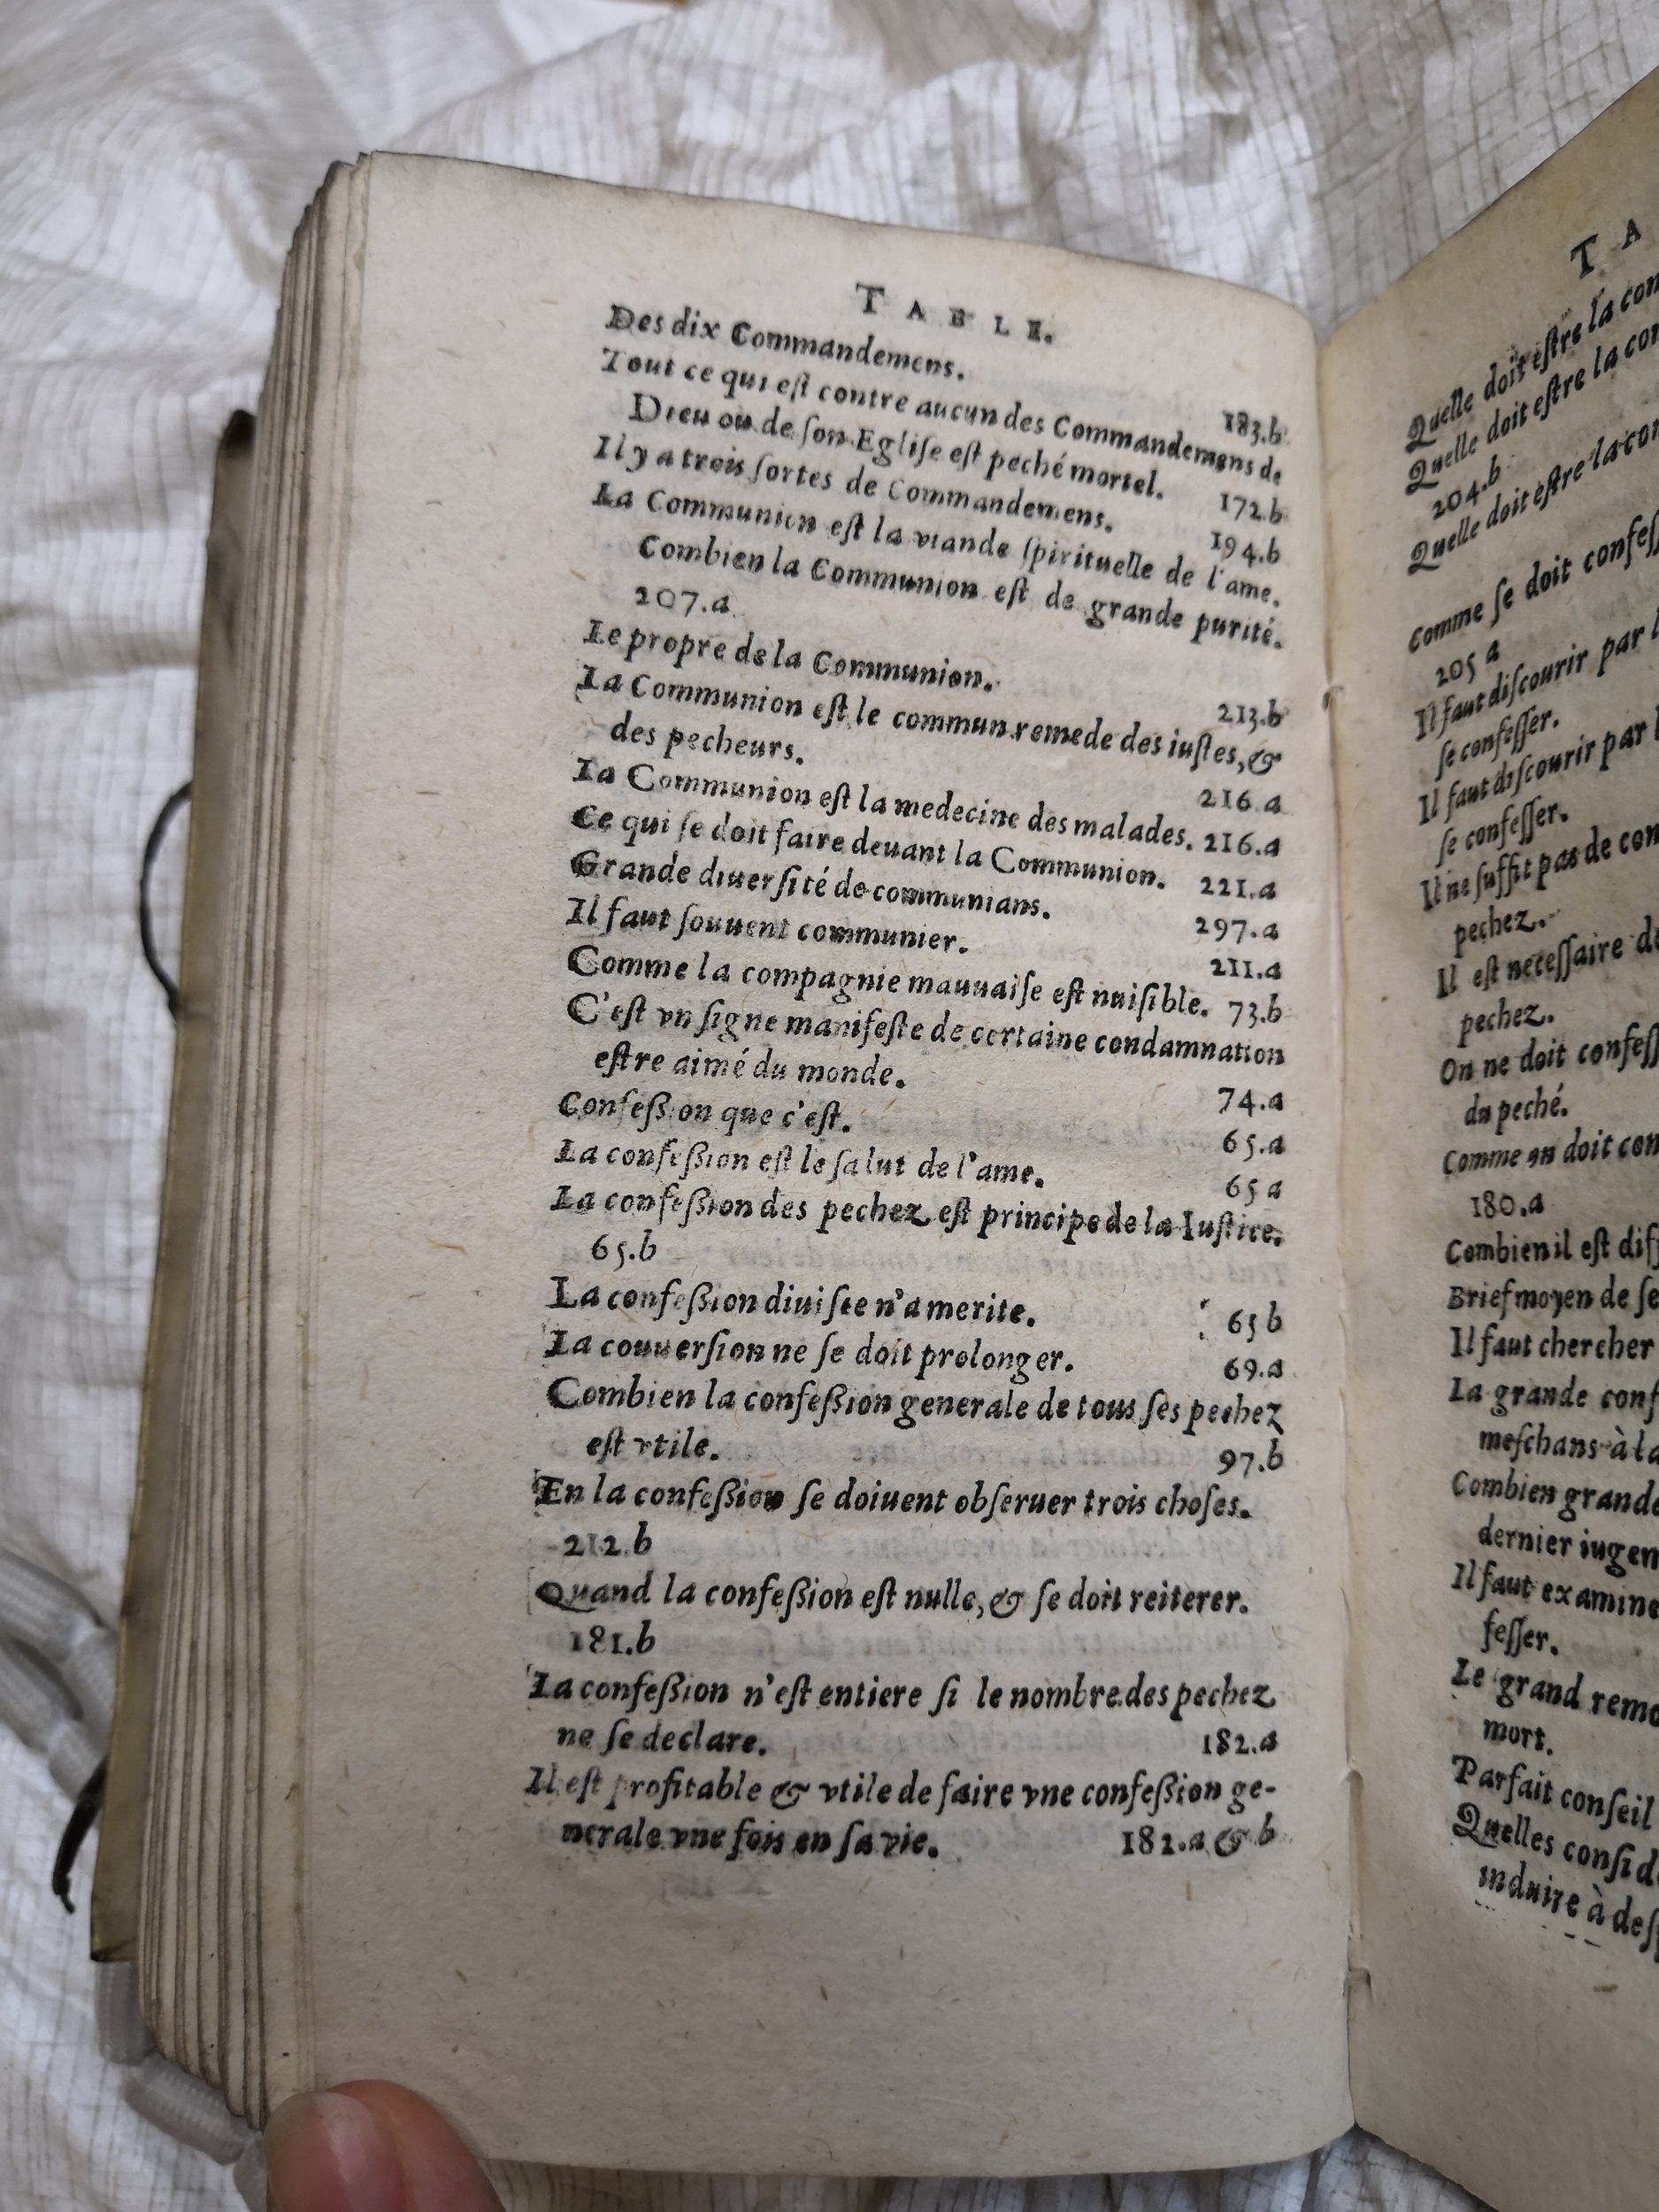 TABLE.
Des dix Commandemens. 183.b
Tout ce qui eſt contre aucun des Commandemens de
Dieu ou de ſon Egliſe eſt peché mortel. 172.b
Il y a trois ſortes de Commandemens. 194.b
La Communion eſt la viande ſpirituelle de l'ame.
Combien la Communion eſt de grande purité.
207.a
Le propre de la Communion. 213.b
La Communion eſt le commun remede des iuſtes, &
des pecheurs. 216.a
La Communion eſt la medecine des malades. 216.a
Ce qui ſe doit faire deuant la Communion. 221.a
Grande diuerſité de communians. 297.a
Il faut ſouuent communier. 211.a
Comme la compagnie mauuaiſe eſt nuiſible. 73.b
C'eſt vn ſigne manifeſte de certaine condamnation
eſtre aimé du monde. 74.a
Confeßion que c'eſt. 65.a
La confeßion eſt le ſalut de l'ame. 65 a
La confeßion des pechez eſt principe de la Iuſtice.
65.b
La confeßion diuiſee n'a merite. 65 b
La conuerſion ne ſe doit prolonger. 69.a
Combien la confeßion generale de tous ſes pechez
eſt vtile. 97.b
En la confeßion ſe doiuent obſeruer trois choſes.
212.b
Quand la confeßion eſt nulle, & ſe doit reiterer.
181.b
La confeßion n'eſt entiere ſi le nombre des pechez
ne ſe declare. 182.a
Il eſt profitable & vtile de faire vne confeßion ge-
nerale vne fois en ſa vie. 182.a & b
T A
Quelle doit eſtre la con
Quelle doit eſtre la con
204.b
Quelle doit eſtre la con
Comme ſe doit confeſſ
205 a
Il faut diſcourir par l
ſe confeſſer.
Il faut diſcourir par l
ſe confeſſer.
Il ne ſuffit pas de con
pechez.
Il eſt neceſſaire de
pechez.
On ne doit confeſſ
du peché.
Comme on doit con
180.a
Combien il eſt diff
Brief moyen de ſe
Il faut chercher
La grande conf
meſchans à la
Combien grande
dernier iugem
Il faut examine
feſſer.
Le grand remo
mort.
Parfait conſeil
Quelles conſide
induire à deſ